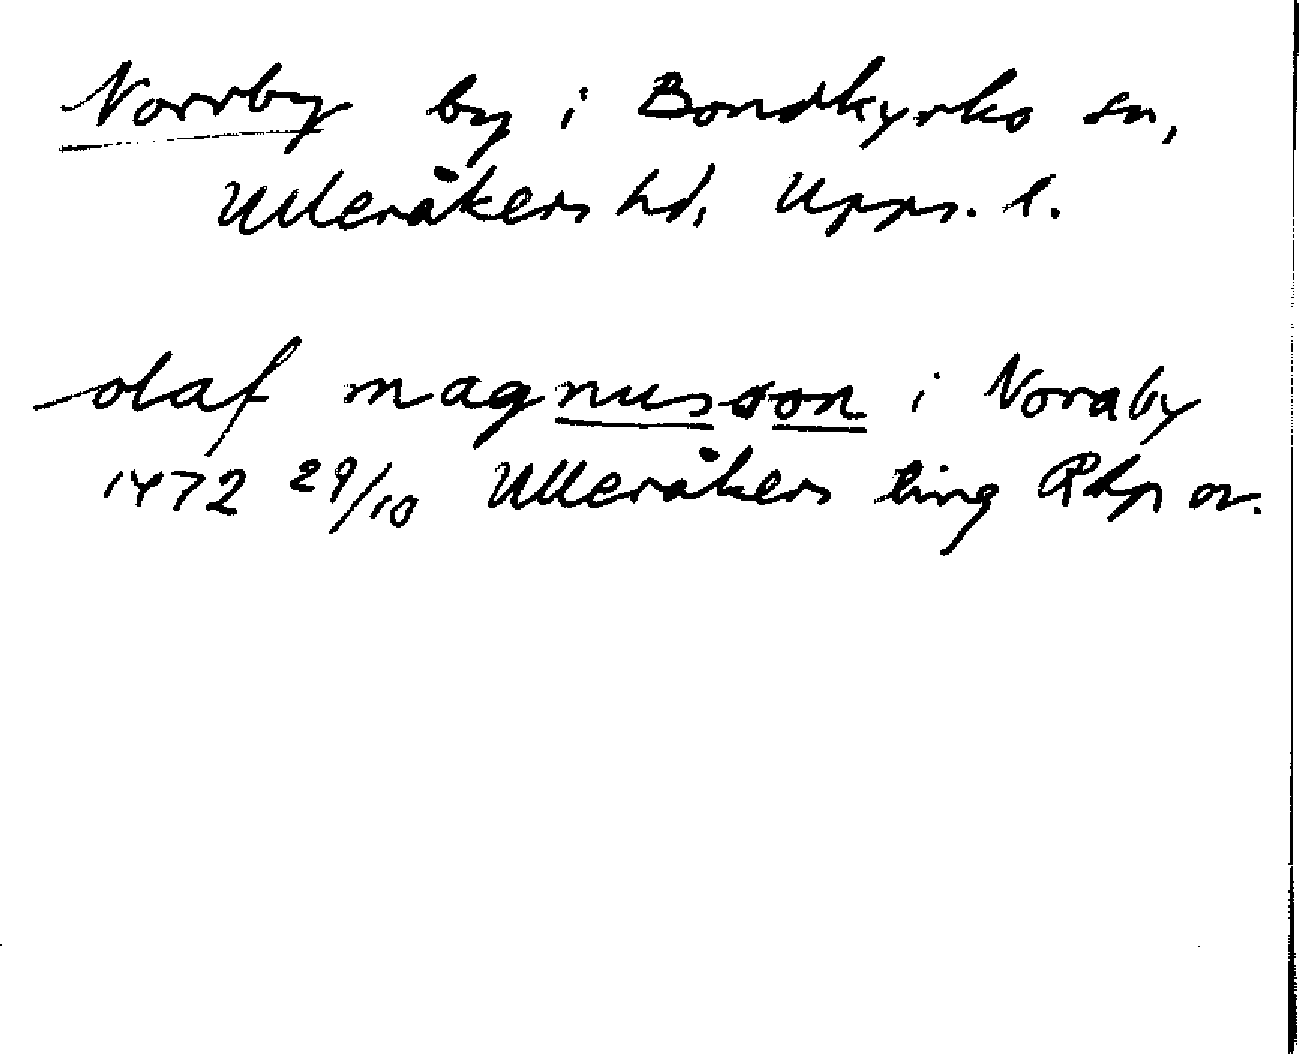 Norrby by i Bondkyrko sn,
Ulleråkers hd, Upps. l.
olaf magnusson i Noraby
1472 29/10 Ulleråkers ting Rkp or.